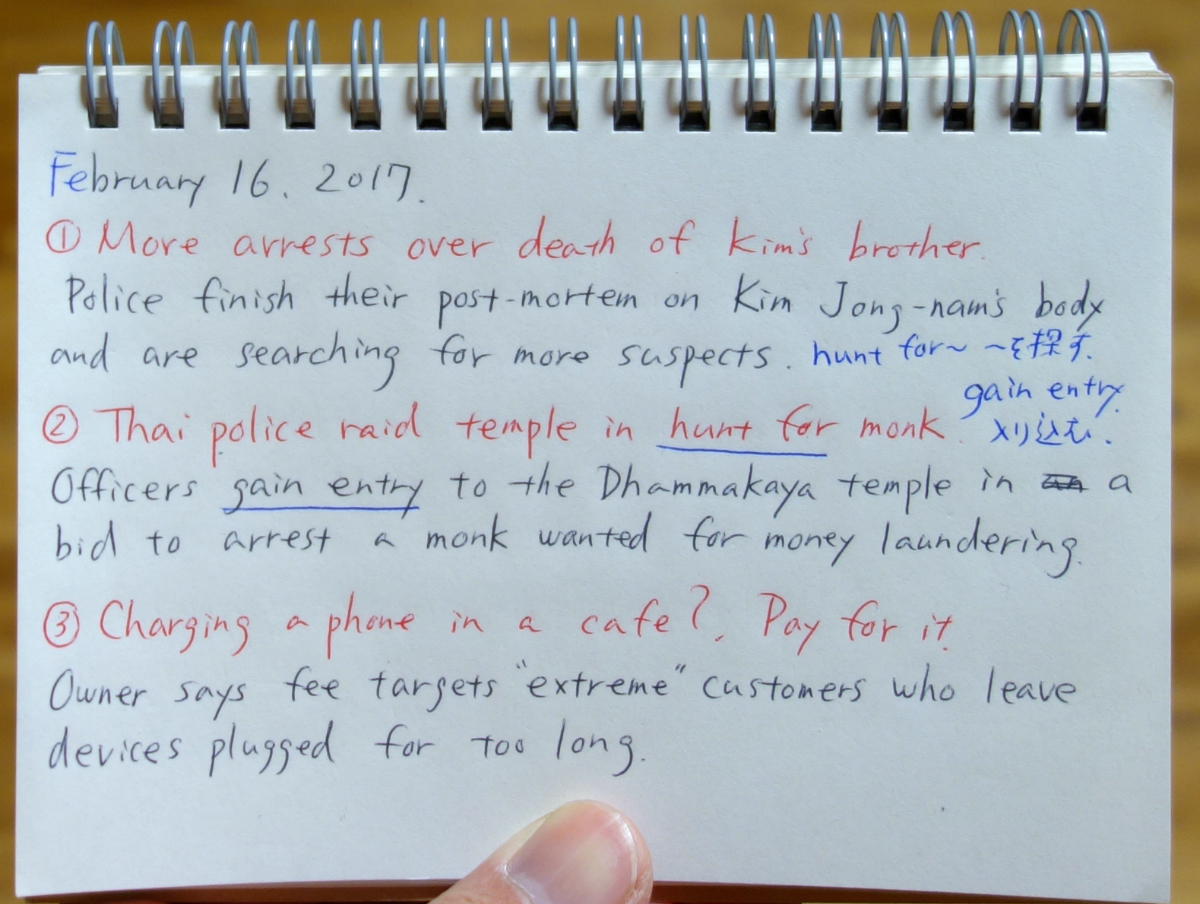 February 16. 2017.
① More arrests over death of Kim's brother.
Police finish their post-mortem on Kim Jong-nam's body
and are searching for more suspects. hunt for~ ~を探す.
gain entry
② Thai police raid temple in hunt for monk. 入り込む.
Officers gain entry to the Dhammakaya temple in a
bid to arrest a monk wanted for money laundering.
③ Charging a phone in a cafe?. Pay for it
Owner says fee targets "extreme" customers who leave
devices plugged for too long.